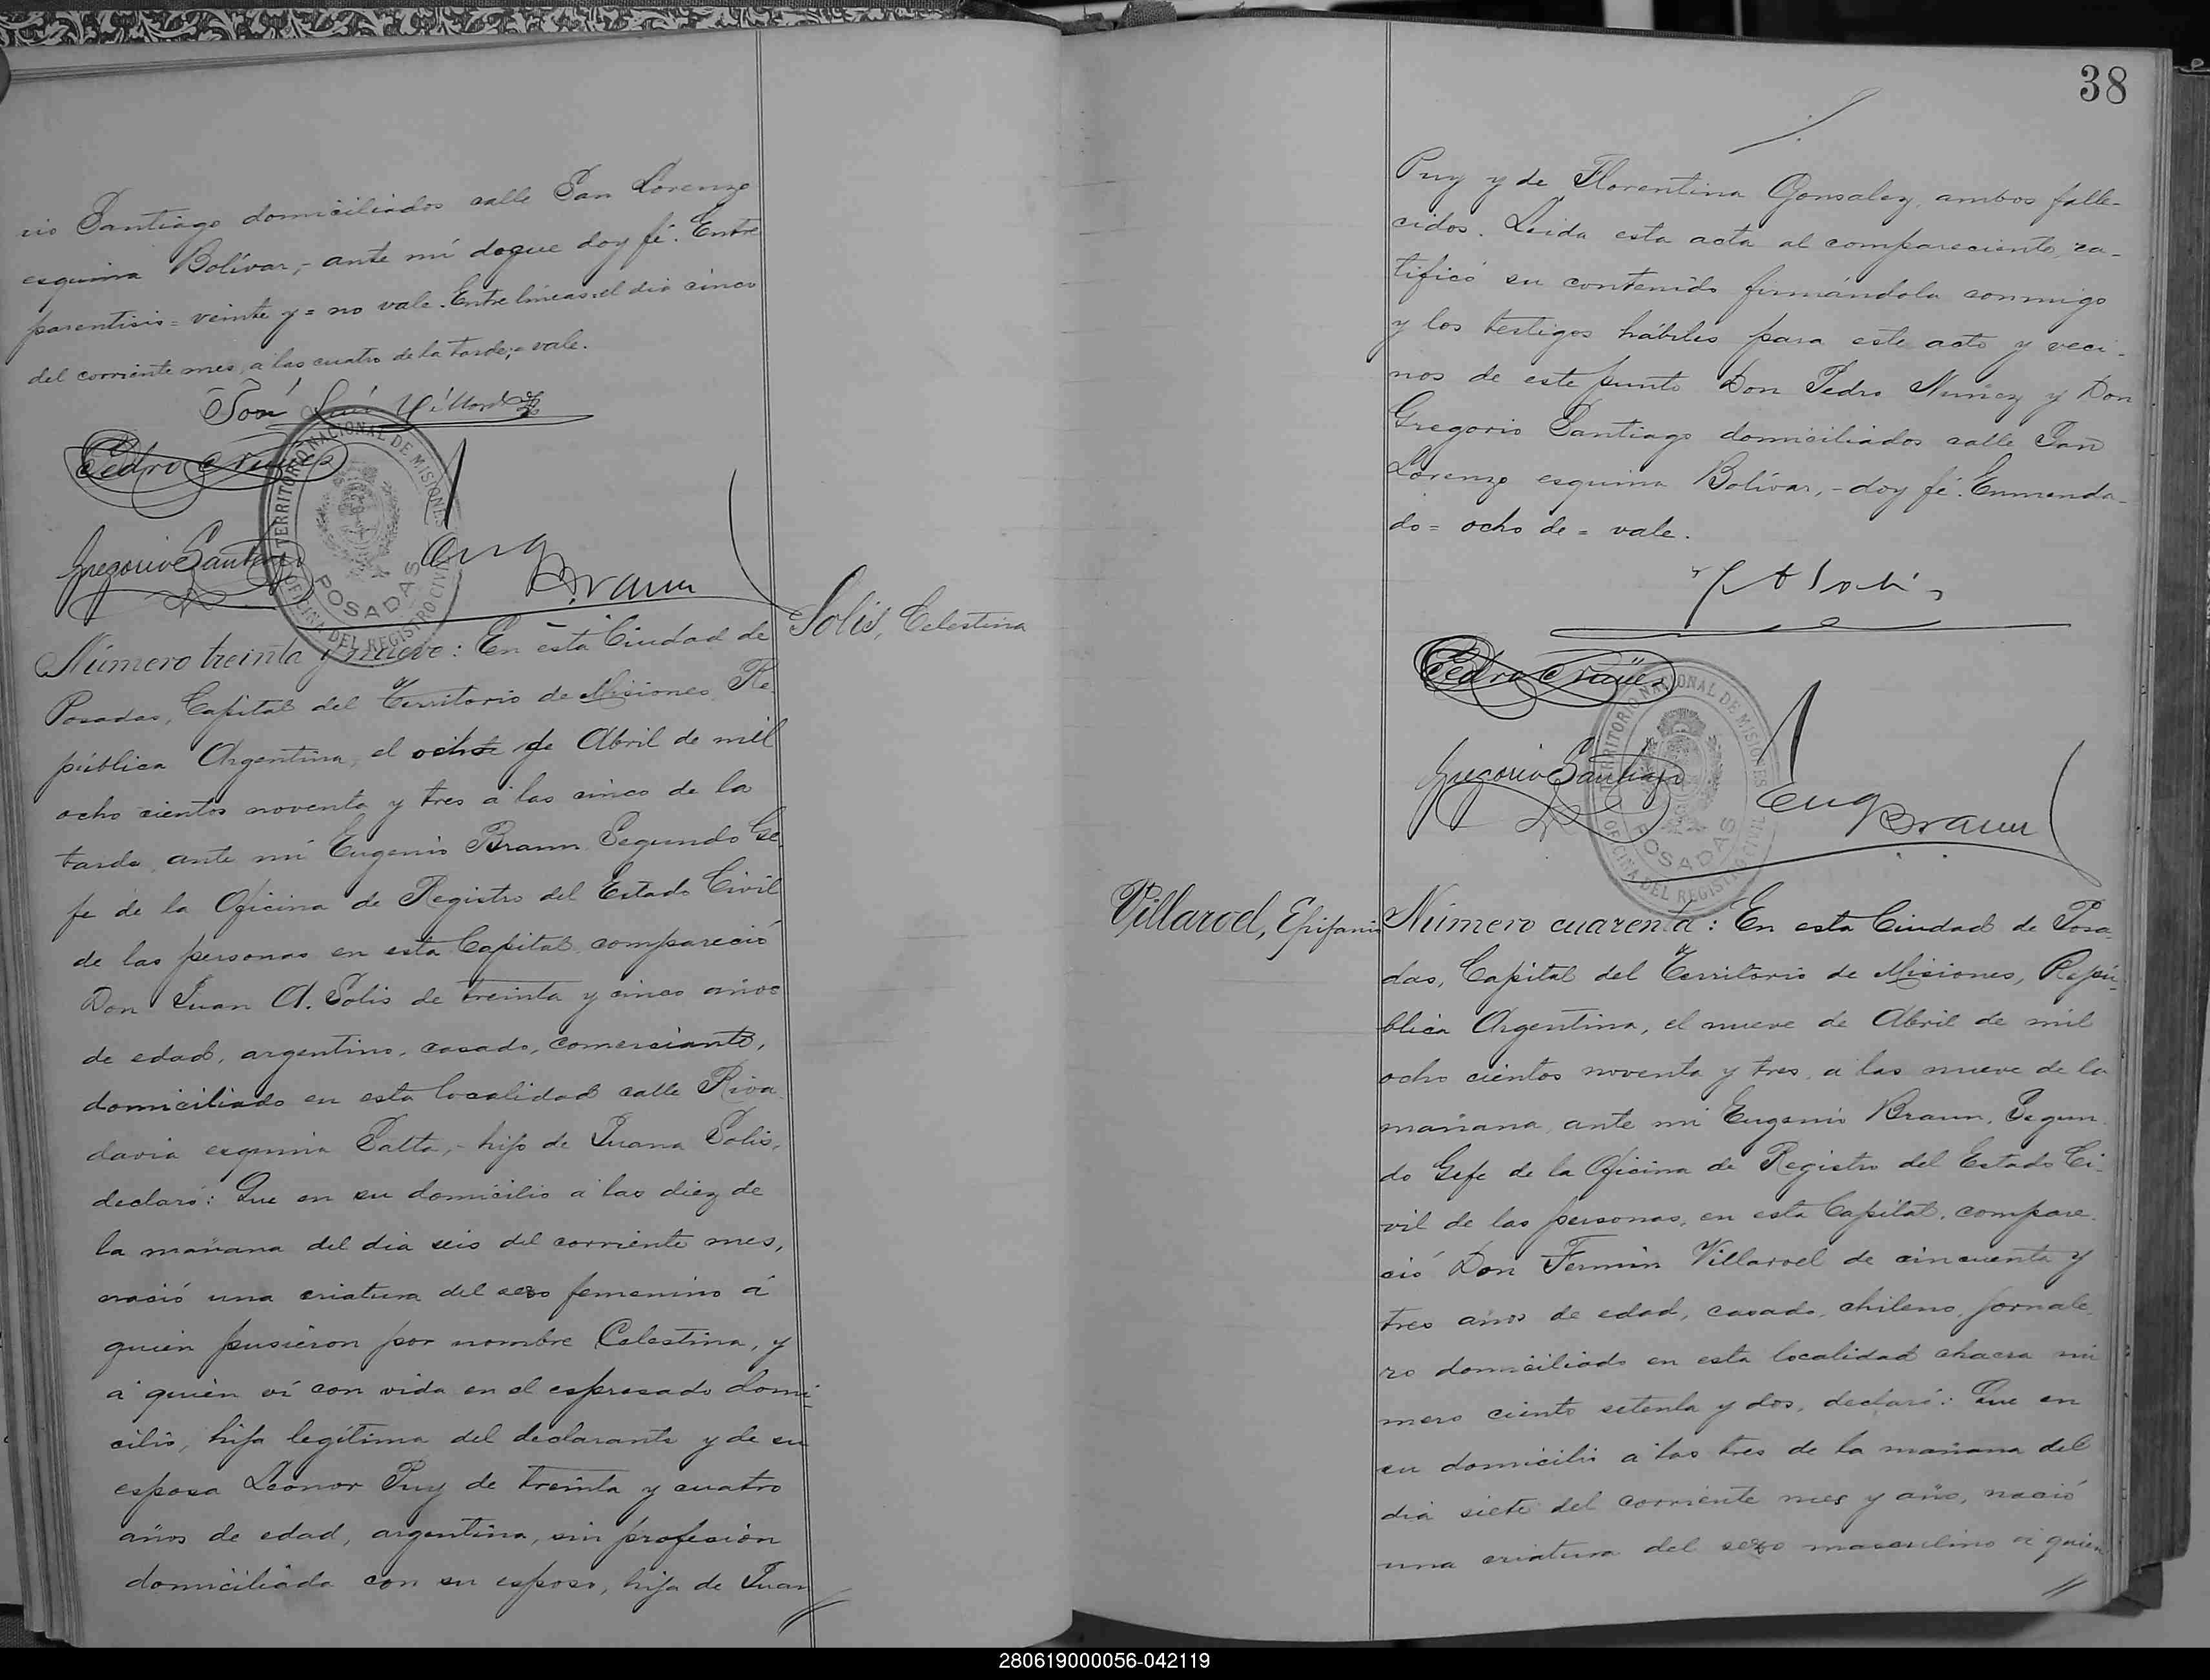 rio Santiago domiciliados calle San Lorenzo
esquina Bolívar,- ante mí de que doy fé. Entre
parentisis = veinte y = no vale. Entre lineas: el dia cinco
del corriente mes, a las cuatro de la tarde, = vale.
José Luis
Pedro Nuñez
Gregorio Santiago
Eug Braun
TERRITORIO NACIONAL DE MISIONES
POSADAS
OFICINA DEL REGISTRO CIVIL
Solis, Celestina
Número treinta y nueve: En esta Ciudad de
Posadas, Capital del Territorio de Misiones, Re-
pública Argentina, el ocho de Abril de mil
ocho cientos noventa y tres a las cinco de la
tarde, ante mí Eugenio Braun Segundo Ge-
fe de la Oficina de Registro del Estado Civil
de las personas en esta Capital, compareció
Don Juan A. Solis de treinta y cinco años
de edad, argentino, casado, comerciante,
domiciliado en esta localidad calle Riva-
davia esquina Salta,- hijo de Juana Solis,
declaró: Que en su domicilio a las diez de
la mañana del dia seis del corriente mes,
nació una criatura del sexo femenino á
quien pusieron por nombre Celestina, y
a quien ví con vida en el espresado domi-
cilio, hija legítima del declarante y de su
esposa Leonor Puy de treinta y cuatro
años de edad, argentina, sin profesion
domiciliada con su esposo, hija de Juan
38
Puy y de Florentina Gonsalez, ambos falle-
cidos. Leida esta acta al compareciente, ra-
tificó su contenido firmándola conmigo
y los testigos hábiles para este acto y veci-
nos de este punto Don Pedro Nuñez y Don
Gregorio Santiago domiciliados calle San
Lorenzo esquina Bolívar,- doy fé. Enmenda-
do = ocho de = vale.
J A Solis
Pedro Nuñez
Gregorio Santiago
Eug Braun
TERRITORIO NACIONAL DE MISIONES
POSADAS
OFICINA DEL REGISTRO CIVIL
Villarod, Epifanio
Número cuarenta: En esta Ciudad de Posa-
das, Capital del Territorio de Misiones, Repú-
blica Argentina, el nueve de Abril de mil
ocho cientos noventa y tres, a las nueve de la
mañana, ante mí Eugenio Braun, Segun-
do Gefe de la Oficina de Registro del Estado Ci-
vil de las personas, en esta Capital, compare-
ció Don Fermin Villaroel de cincuenta y
tres años de edad, casado, chileno, jornale-
ro domiciliado en esta localidad chacra nú
mero ciento setenta y dos, declaró: Que en
su domicilio a las tres de la mañana del
dia siete del corriente mes y año, nació
una criatura del sexo masculino á quien
280619000056-042119